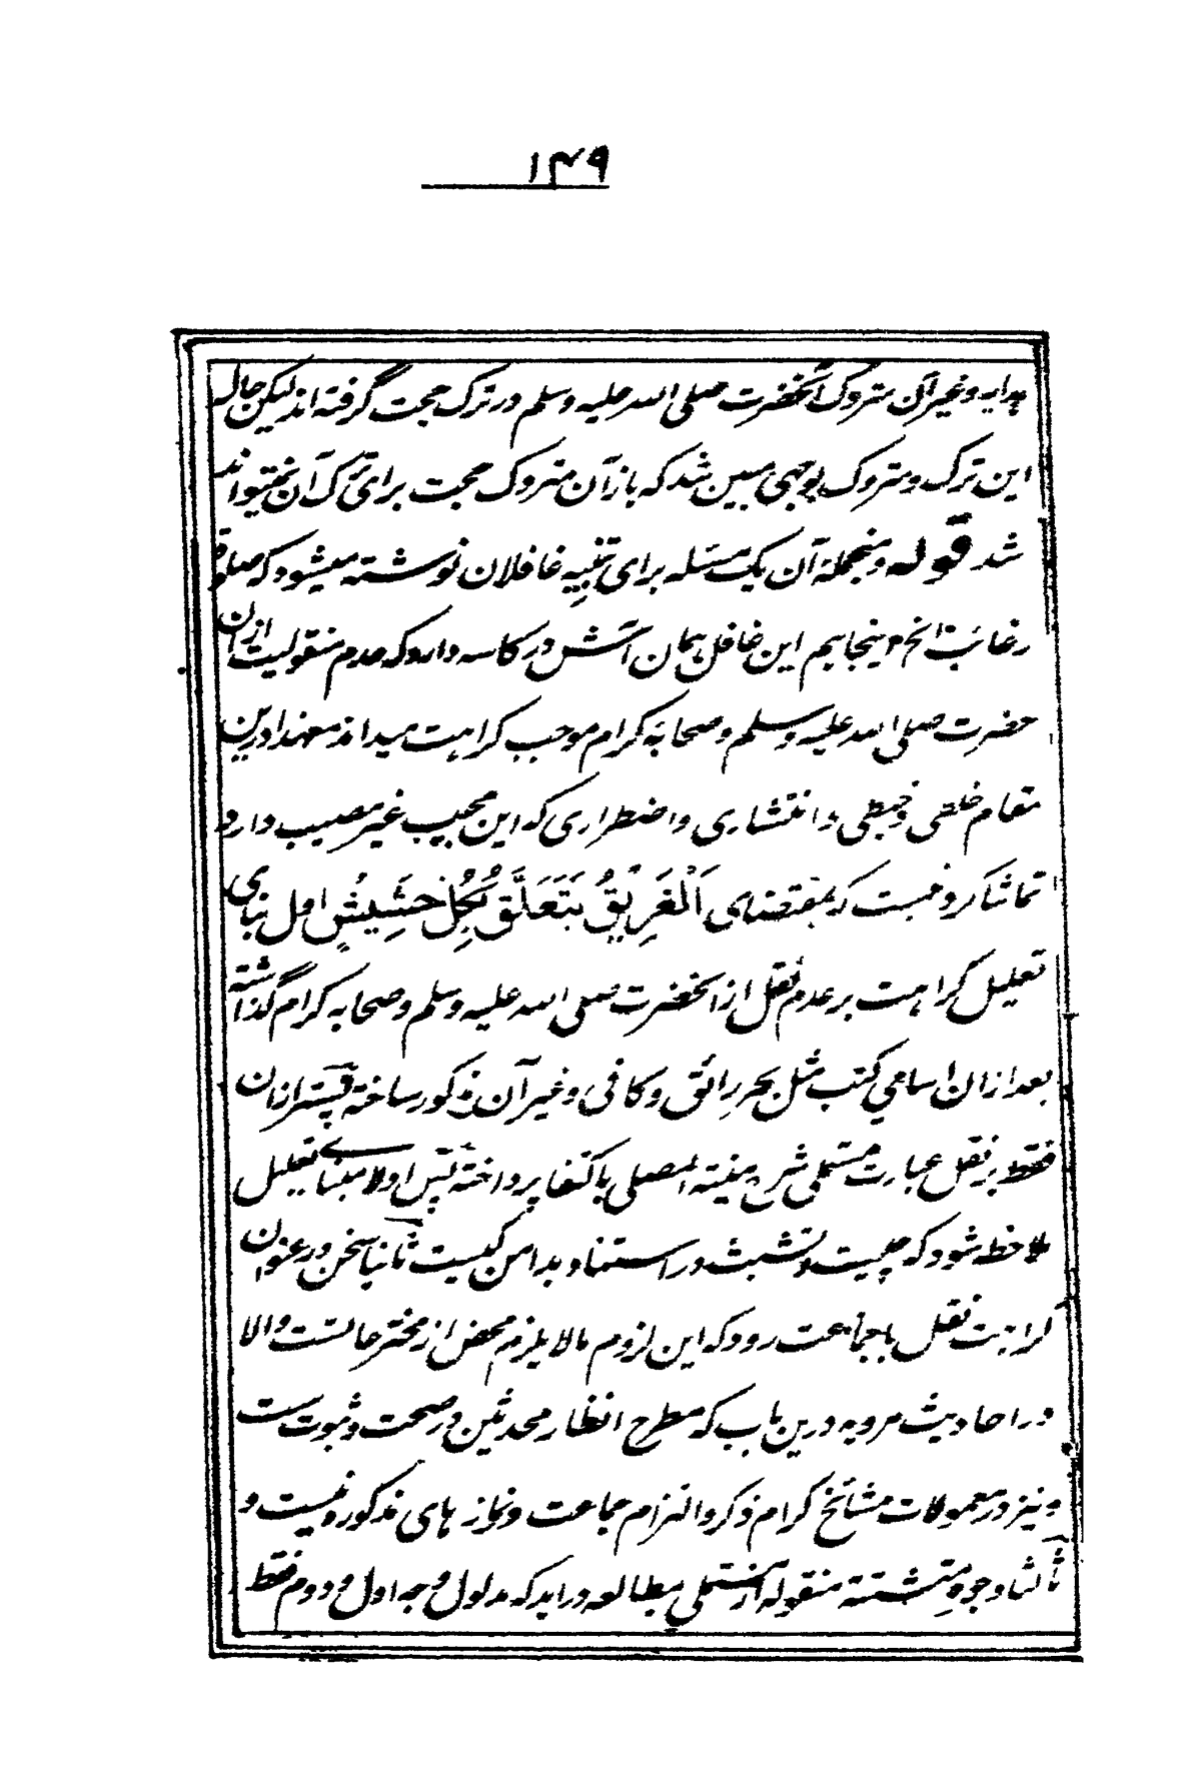 ۱۴۹
هدایه و غیر آن متروک آنحضرت صلی الله علیه وسلم در ترک حجت گرفته اند لیکن حال
این ترک و متروک بوجهی مبین شد که باز آن متروک حجت برای ترک آن نمیتواند
شد قوله و منجمله آن یک مسئله برای تنبیه غافلان نوشته میشود که صلوة
رغائب الخ اینجا هم این غافل همان آتش در کاسه دارد که عدم منقولیت از آن
حضرت صلی الله علیه وسلم و صحابه کرام موجب کراهت میداند معهذا درین
مقام خلطی و خبطی و انتشاری و اضطراری که این مجیب غیر مصیب دارد
تماشا کردنیست که بمقتضای اَلْغَرِیْقُ یَتَعَلَّقُ بِکُلِّ حَشِیْشٍ اول بنای
تعلیل کراهت بر عدم نقل از آنحضرت صلی الله علیه وسلم و صحابه کرام گذاشته
بعد ازان اسامی کتب مثل بحر رائق و کافی و غیر آن مذکور ساخته پستر ازان
فقط بر نقل عبارت مستملی شرح منیة المصلی باکتفا پرداخته پس اولا مبنای تعلیل
ملاحظه شود که چیست و تشبث در استناد بدامن کیست ثانیا سخن در عنوان
کراهت نفل باجماعت رود که این لزوم مالا یلزم محض از مخترعاتست والا
در احادیث مرویه درین باب که مطرح انظار محدثین در صحت و ثبوت ست
و نیز در معمولات مشائخ کرام ذکر و التزام جماعت در نماز های مذکوره نیست و
ثالثا وجوه مشتته منقوله از مستملی بمطالعه در اید که مدلول وجه اول و دوم فقط